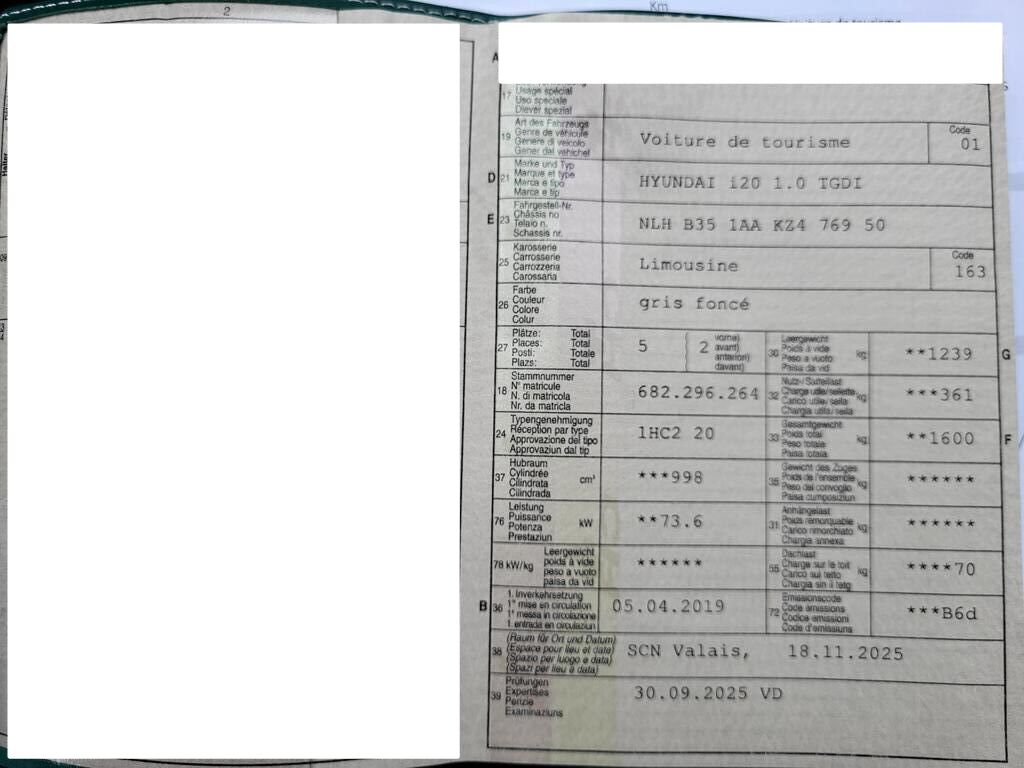 2
Km
A
17 Usage spécial
Uso speciale
Diever spezial
19 Art des Fahrzeugs
Genre de véhicule
Genere di veicolo
Gener dal vehichel
Voiture de tourisme
Code
01
D 21 Marke und Typ
Marque et type
Marca e tipo
Marca e tip
HYUNDAI i20 1.0 TGDI
E 23 Fahrgestell-Nr.
Châssis no
Telaio n.
Schassis nr.
NLH B35 1AA KZ4 769 50
25 Karosserie
Carrosserie
Carrozzeria
Carossaria
Limousine
Code
163
26 Farbe
Couleur
Colore
Colur
gris foncé
27 Plätze: Total
Places: Total
Posti: Totale
Plazs: Total
5
2 vorne)
avant)
anteriori)
davant)
30 Leergewicht
Poids à vide
Peso a vuoto
Paisa da vid
kg
**1239
G
18 Stammnummer
N° matricule
N. di matricola
Nr. da matricla
682.296.264
32 Nutz-/Sattellast
Charge utile/sellette
Carico utile/sella
Chargia utila/sella
kg
***361
24 Typengenehmigung
Réception par type
Approvazione del tipo
Approvaziun dal tip
1HC2 20
33 Gesamtgewicht
Poids total
Peso totale
Paisa totala
kg
**1600
F
37 Hubraum
Cylindrée
Cilindrata
Cilindrada
cm³
***998
35 Gewicht des Zuges
Poids de l'ensemble
Peso del convoglio
Paisa cumposiziun
kg
******
76 Leistung
Puissance
Potenza
Prestaziun
kW
**73.6
31 Anhängelast
Poids remorquable
Carico rimorchiato
Chargia annexa
kg
******
78 kW/kg Leergewicht
poids à vide
peso a vuoto
paisa da vid
******
55 Dachlast
Charge sur le toit
Carico sul tetto
Chargia sin il tetg
kg
****70
B 36 1. Inverkehrsetzung
1re mise en circulation
1a messa in circolazione
1. entrada en circulaziun
05.04.2019
72 Emissionscode
Code émissions
Codice emissioni
Code d'emissiuns
***B6d
38 (Raum für Ort und Datum)
(Espace pour lieu et date)
(Spazio per luogo e data)
(Spazi per lieu e data)
SCN Valais, 18.11.2025
39 Prüfungen
Expertises
Perizie
Examinaziuns
30.09.2025 VD